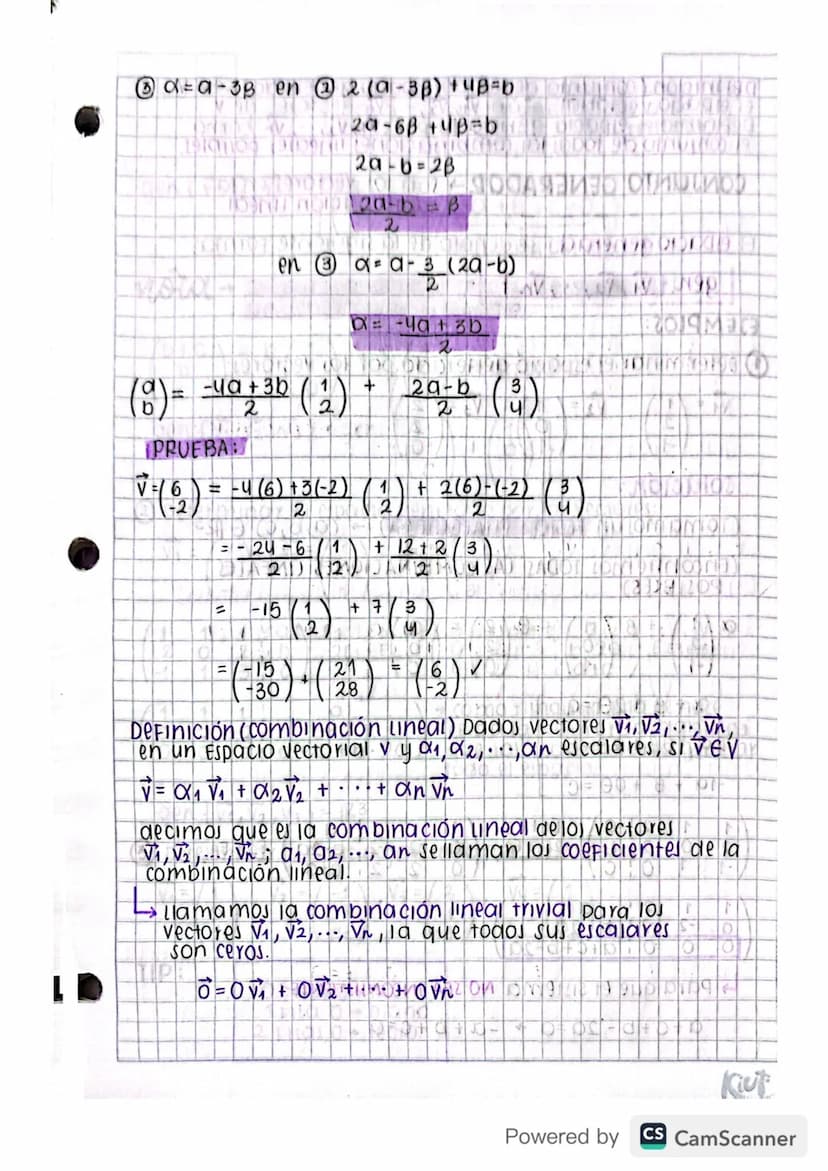 ③ α = a - 3β en ② 2(a - 3β) + 4β = b
2a - 6β + 4β = b
2a - b = 2β
(2a - b)/2 = β
en ③ α = a - 3/2 (2a - b)
α = (-4a + 3b)/2
(a b) = (-4a + 3b)/2 (1 2) + (2a - b)/2 (3 4)
PRUEBA:
v⃗ = (6 -2) = (-4(6) + 3(-2))/2 (1 2) + (2(6) - (-2))/2 (3 4)
= (-24 - 6)/2 (1 2) + (12 + 2)/2 (3 4)
= -15 (1 2) + 7 (3 4)
= (-15 -30) + (21 28) = (6 -2) ✓
Definición (combinación lineal) Dados vectores v⃗1, v⃗2, ..., v⃗n,
en un Espacio vectorial V y α1, α2, ..., αn escalares, si v⃗ ∈ V
v⃗ = α1 v⃗1 + α2 v⃗2 + ... + αn v⃗n
decimos que es la combinación lineal de los vectores
v⃗1, v⃗2, ..., v⃗n ; α1, α2, ..., αn se llaman los coeficientes de la
combinación lineal.
↳ llamamos la combinación lineal trivial para los
vectores v⃗1, v⃗2, ..., v⃗n, la que todos sus escalares
son ceros.
0⃗ = 0v⃗1 + 0v⃗2 + ... + 0v⃗n
Kiut
Powered by CS CamScanner